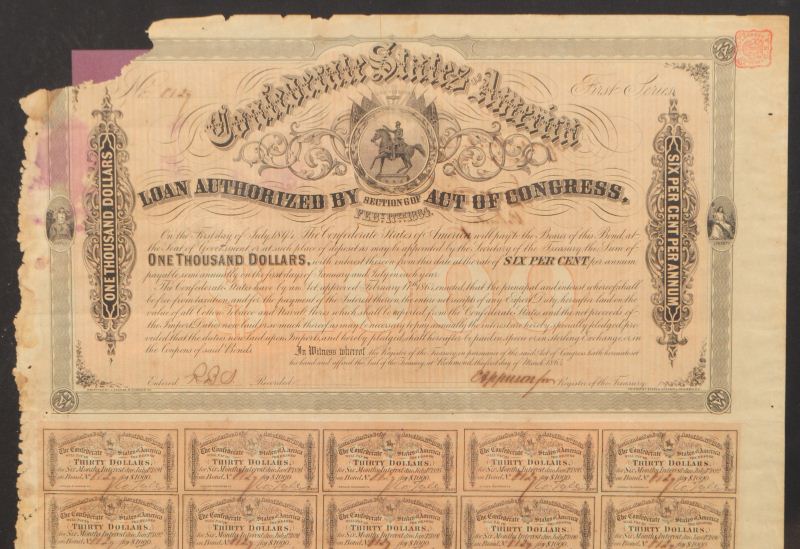 No.
First Series
Confederate States America
LOAN AUTHORIZED BY SECTION 6 OF ACT OF CONGRESS,
FEB: 17TH 1864.
ONE THOUSAND DOLLARS
SIX PER CENT PER ANNUM
On the First day of July 1894, The Confederate States of America will pay to the Bearer of this Bond, at
the Seat of Government or at such place of deposit as may be appointed by the Secretary of the Treasury, the Sum of
ONE THOUSAND DOLLARS, with interest thereon from this date at the rate of SIX PER CENT, per annum
payable semi annually on the first days of January and July in each year.
The Confederate States have by an Act approved February 17th 1864 enacted that the principal and interest whereof shall
be free from taxation, and for the payment of the Interest thereon, the entire net receipts of any Export Duty hereafter laid on the
value of all Cotton, Tobacco and Naval Stores which shall be exported from the Confederate States and the net proceeds of
the Import Duties now laid or so much thereof as may be necessary to pay annually the interest are hereby specially pledged, pro-
vided that the duties now laid upon Imports and hereby pledged shall hereafter be paid in specie or in Sterling Exchange, or in
the Coupons of said Bonds.
$1000
In Witness whereof the Register of the Treasury in pursuance of the said Act of Congress hath hereunto set
his hand and affixed the Seal of the Treasury, at Richmond, this first day of March 1864
Entered Recorded Register of the Treasury
The Confederate States of America
THIRTY DOLLARS,
for Six Months Interest due
on Bond, for $1000.
The Confederate States of America
THIRTY DOLLARS,
for Six Months Interest due
on Bond, for $1000.
The Confederate States of America
THIRTY DOLLARS,
for Six Months Interest due
on Bond, for $1000.
The Confederate States of America
THIRTY DOLLARS,
for Six Months Interest due
on Bond, for $1000.
The Confederate States of America
THIRTY DOLLARS,
for Six Months Interest due
on Bond, for $1000.
The Confederate States of America
THIRTY DOLLARS,
for Six Months Interest due
on Bond, for $1000.
The Confederate States of America
THIRTY DOLLARS,
for Six Months Interest due
on Bond, for $1000.
The Confederate States of America
THIRTY DOLLARS,
for Six Months Interest due
on Bond, for $1000.
The Confederate States of America
THIRTY DOLLARS,
for Six Months Interest due
on Bond, for $1000.
The Confederate States of America
THIRTY DOLLARS,
for Six Months Interest due
on Bond, for $1000.